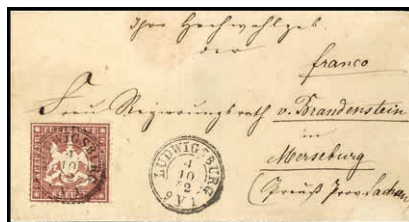 Ihro Hochwohlgeb.
der
franco
Frau Regierungsrath v. Brandenstein
in
Merseburg
(Preuß Prov Sachsen
LUDWIGSBURG
1
10
2
KREUZER